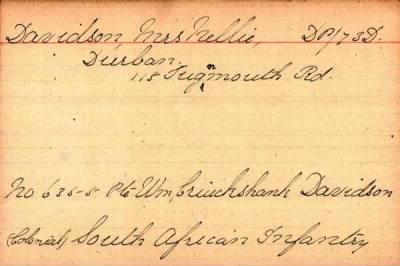 Davidson, Mrs Nellie, DP/73D.
Durban.
118 Tugmouth Rd.
No 635-5 Pte Wm, Cruickshank Davidson
(Colonial) South African Infantry